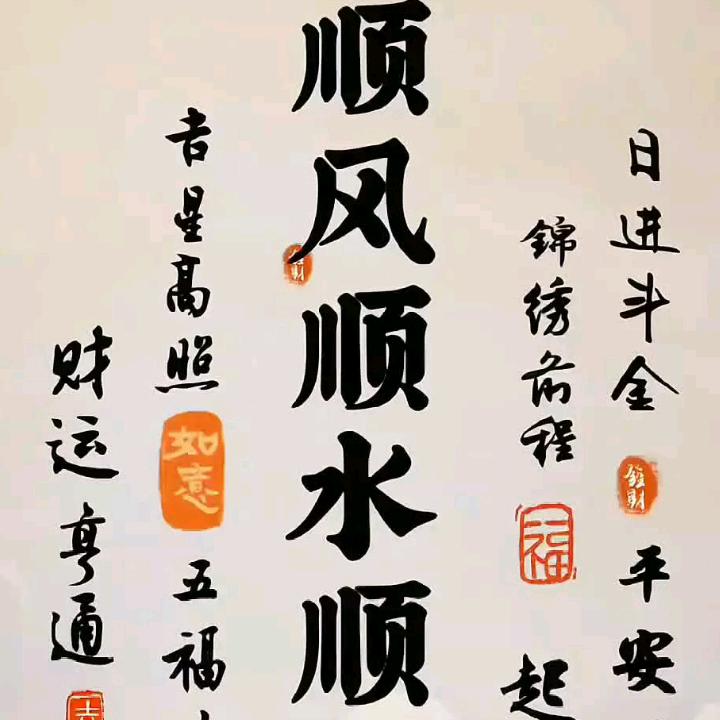 日进斗金
發財
平安
錦绣前程
福
起
顺风顺水顺
發財
吉星高照
如意
五福
财运亨通
吉